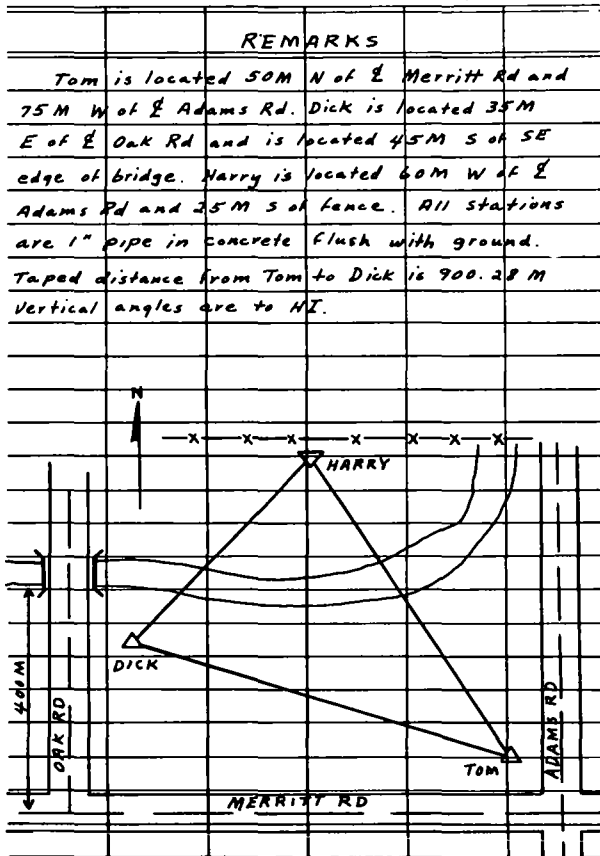 REMARKS
Tom is located 50M N of ℄ Merritt Rd and
75M W of ℄ Adams Rd. Dick is located 35M
E of ℄ Oak Rd and is located 45M S of SE
edge of bridge. Harry is located 60M W of ℄
Adams Rd and 25M S of fence. All stations
are 1" pipe in concrete flush with ground.
Taped distance from Tom to Dick is 900.28 M
Vertical angles are to HI.
N
x x x x x x x
HARRY
DICK
400M
OAK RD
ADAMS RD
TOM
MERRITT RD